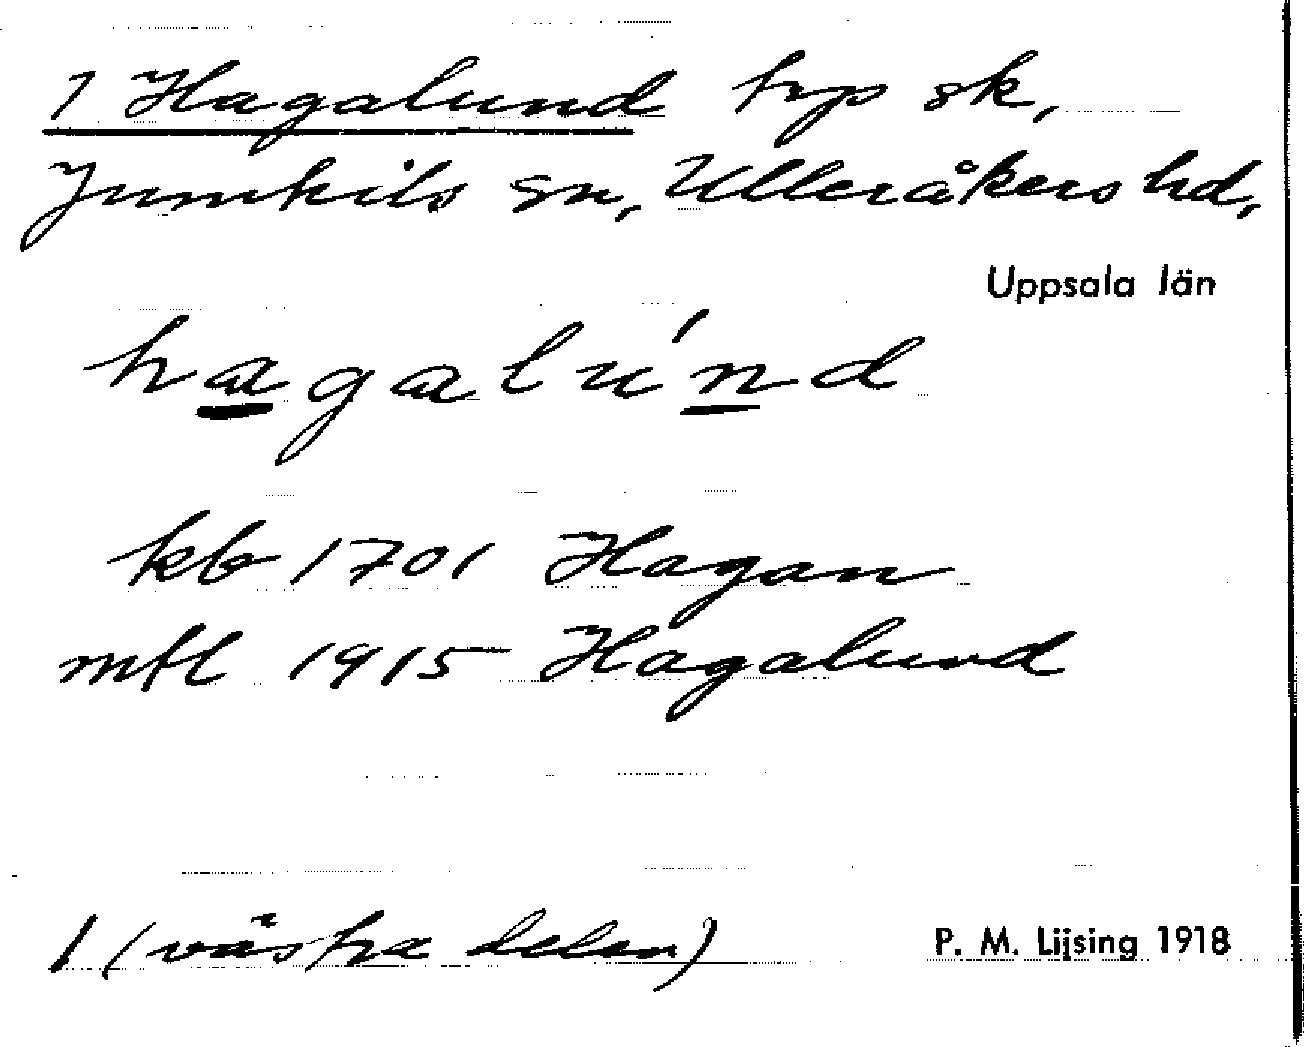 1 Hagalund trp sk,
Jumkils sn, Ulleråkers hd,
Uppsala län
hagalúnd
kb 1701 Hagan
mfl 1915 Hagalund
1 (västra delen)
P. M. Lijsing 1918